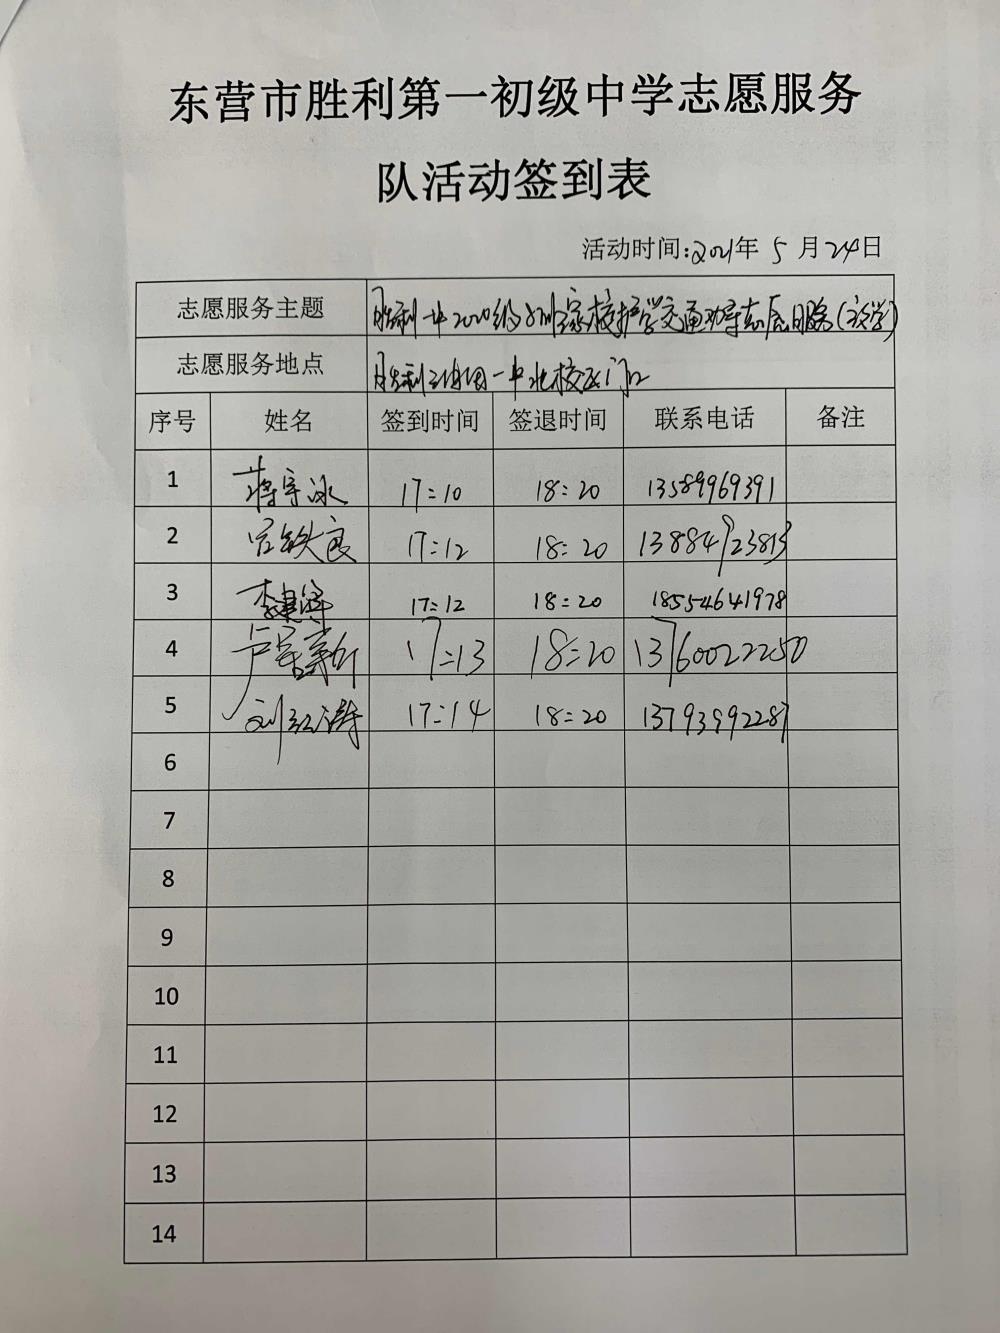 东营市胜利第一初级中学志愿服务
队活动签到表
活动时间:2021年 5 月 24日
志愿服务主题 胜利一中2020级 家校护学交通劝导志愿服务(放学)
志愿服务地点 胜利 一中北校区门口
序号 姓名 签到时间 签退时间 联系电话 备注
1 蒋宇冰 17:10 18:20 13589969391
2 17:12 18:20 13884923813
3 李建 17:12 18:20 18554641978
4 卢 17:13 18:20 13760022250
5 刘红涛 17:14 18:20 13793992287
6
7
8
9
10
11
12
13
14